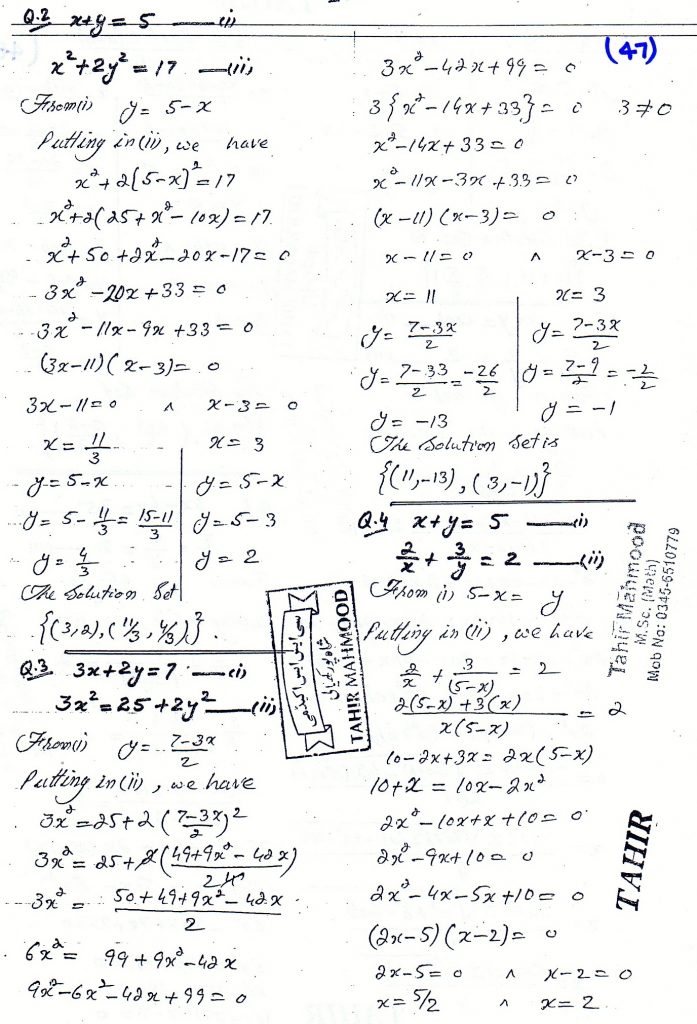 Q.2 x+y = 5 —(i)
x²+2y² = 17 —(ii)
From(i) y = 5-x
Putting in (ii), we have
x²+2(5-x)² = 17
x²+2(25+x²-10x) = 17
x²+50+2x²-20x-17 = 0
3x²-20x+33 = 0
3x²-11x-9x+33 = 0
(3x-11)(x-3) = 0
3x-11 = 0 ∧ x-3 = 0
x = 11/3 x = 3
y = 5-x y = 5-x
y = 5-11/3 = 15-11/3 y = 5-3
y = 4/3 y = 2
The Solution Set
{(3,2),(11/3,4/3)}.
Q.3 3x+2y = 7 —(i)
3x² = 25+2y² —(ii)
From(i) y = 7-3x/2
Putting in (ii), we have
3x² = 25+2(7-3x/2)²
3x² = 25+2(49+9x²-42x)/2 4
3x² = 50+49+9x²-42x/2
6x² = 99+9x²-42x
9x²-6x²-42x+99 = 0
(47)
3x²-42x+99 = 0
3{x²-14x+33} = 0 3≠0
x²-14x+33 = 0
x²-11x-3x+33 = 0
(x-11)(x-3) = 0
x-11 = 0 ∧ x-3 = 0
x = 11 x = 3
y = 7-3x/2 y = 7-3x/2
y = 7-33/2 = -26/2 y = 7-9/2 = -2/2
y = -13 y = -1
The Solution Set is
{(11,-13),(3,-1)}
Q.4 x+y = 5 —(i)
2/x + 3/y = 2 —(ii)
From (i) 5-x = y
Putting in (ii), we have
2/x + 3/(5-x) = 2
2(5-x)+3(x)/x(5-x) = 2
10-2x+3x = 2x(5-x)
10+x = 10x-2x²
2x²-10x+x+10 = 0
2x²-9x+10 = 0
2x²-4x-5x+10 = 0
(2x-5)(x-2) = 0
2x-5 = 0 ∧ x-2 = 0
x = 5/2 ∧ x = 2
TAHIR MAHMOOD
Tahir Mahmood
M.Sc. (Math)
Mob No: 0345-6510779
TAHIR